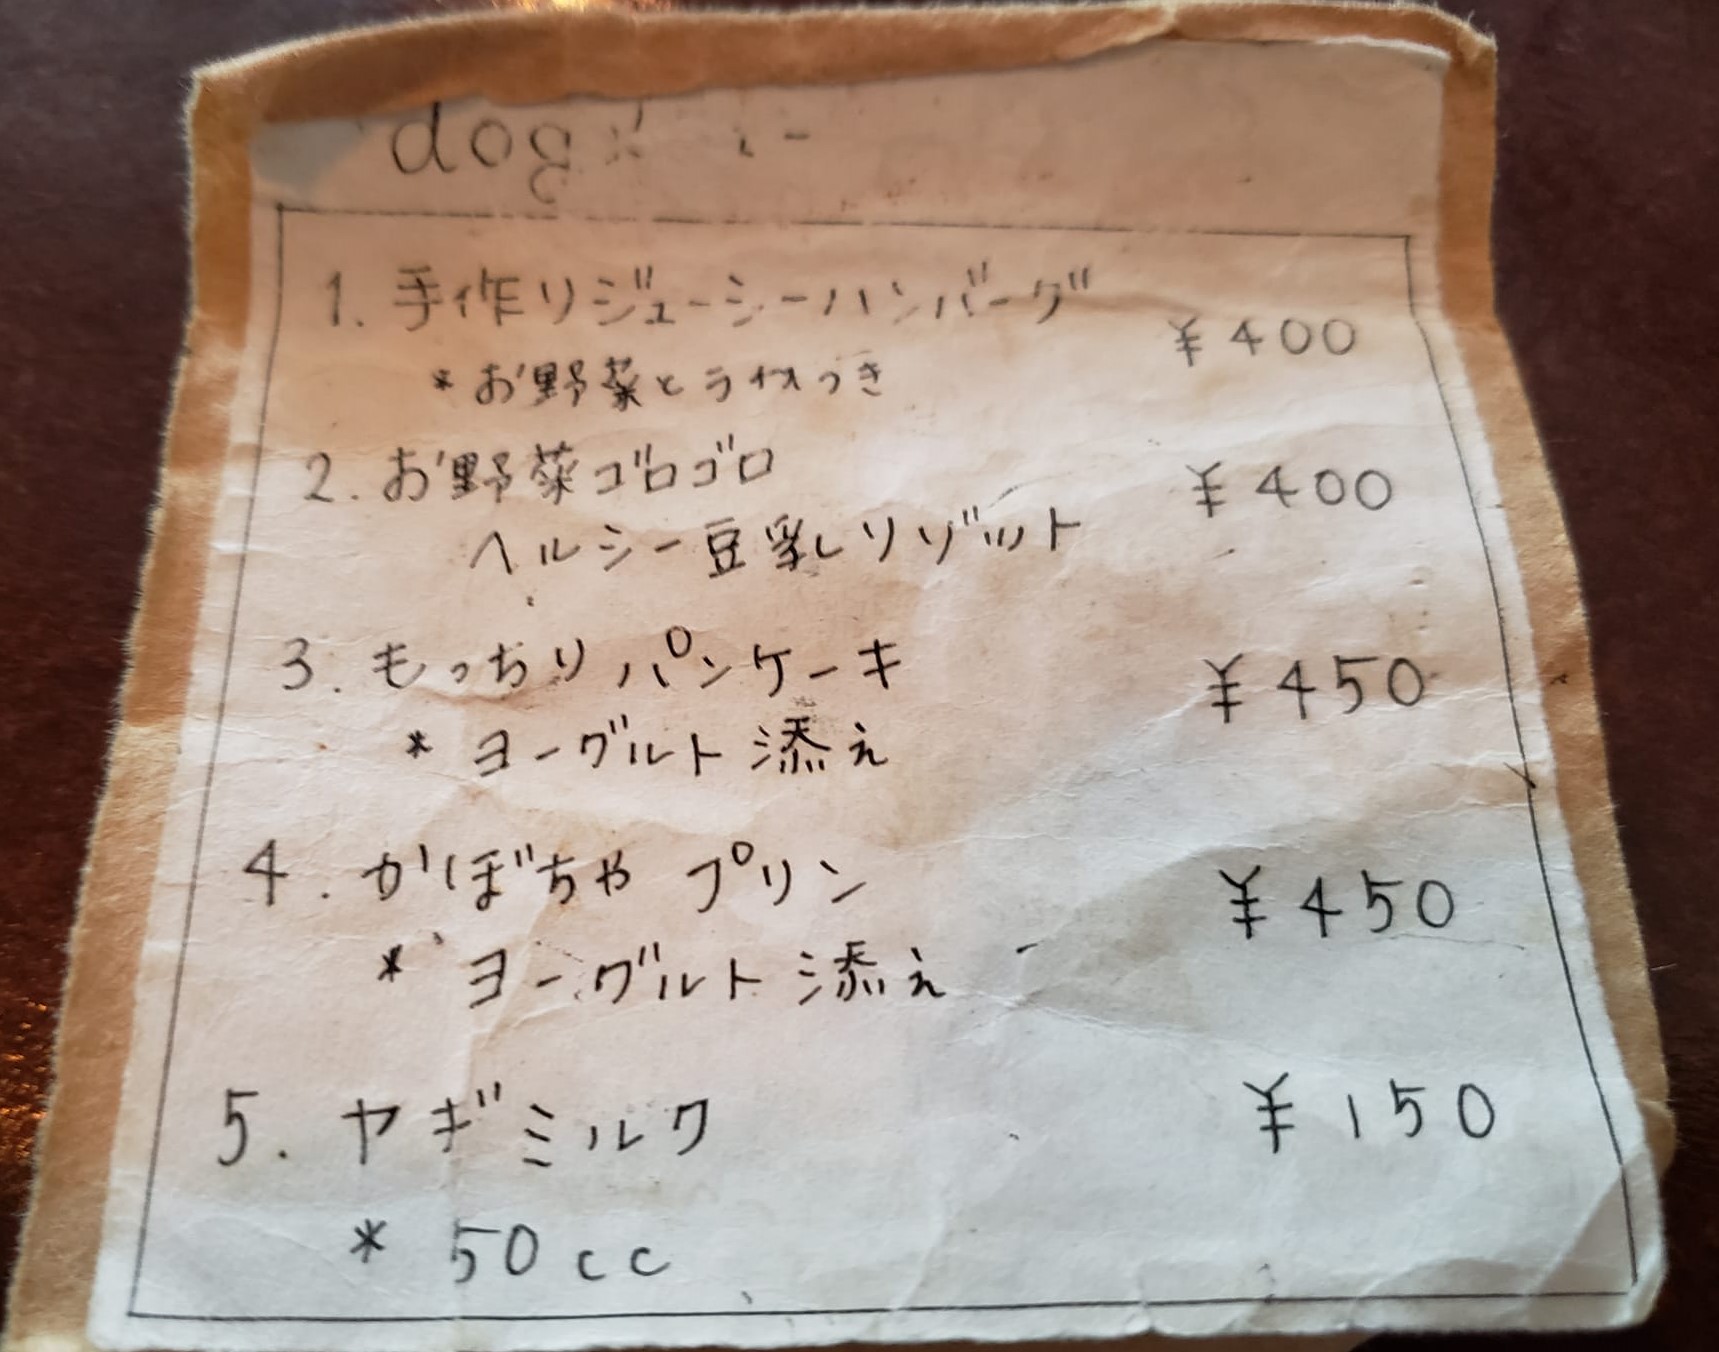 dog
1. 手作りジューシーハンバーグ ¥400
* お野菜とライスつき
2. お野菜ゴロゴロ ¥400
ヘルシー豆乳リゾット
3. もっちりパンケーキ ¥450
* ヨーグルト添え
4. かぼちゃプリン ¥450
* ヨーグルト添え
5. ヤギミルク ¥150
* 50cc